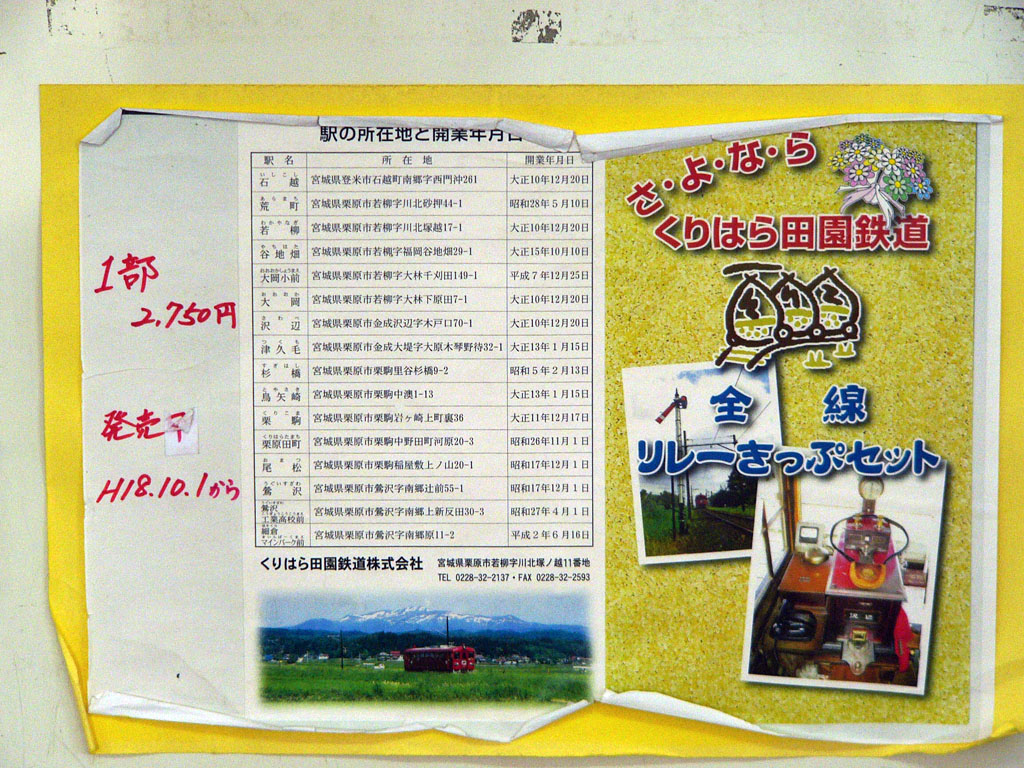 1部
2,750円
発売
H18.10.1から
駅の所在地と開業年月日
駅名 所在地 開業年月日
いしこし
石越 宮城県登米市石越町南郷字西門沖261 大正10年12月20日
あらまち
荒町 宮城県栗原市若柳字川北砂押44-1 昭和28年5月10日
わかやなぎ
若柳 宮城県栗原市若柳字川北塚越17-1 大正10年12月20日
やちはた
谷地畑 宮城県栗原市若柳字福岡谷地畑29-1 大正15年10月10日
おおおかしょうまえ
大岡小前 宮城県栗原市若柳字大林千刈田149-1 平成7年12月25日
おおおか
大岡 宮城県栗原市若柳字大林下原田7-1 大正10年12月20日
さわべ
沢辺 宮城県栗原市金成沢辺字木戸口70-1 大正10年12月20日
つくも
津久毛 宮城県栗原市金成大堤字大原木琴野待32-1 大正13年1月15日
すぎはし
杉橋 宮城県栗原市栗駒里谷杉橋9-2 昭和5年2月13日
とやさき
鳥矢崎 宮城県栗原市栗駒中澳1-13 大正13年1月15日
くりこま
栗駒 宮城県栗原市栗駒岩ヶ崎上町裏36 大正11年12月17日
くりはらたまち
栗原田町 宮城県栗原市栗駒中野田町河原20-3 昭和26年11月1日
おまつ
尾松 宮城県栗原市栗駒稲屋敷上ノ山20-1 昭和17年12月1日
うぐいすざわ
鶯沢 宮城県栗原市鶯沢字南郷辻前55-1 昭和17年12月1日
鶯沢
工業高校前 宮城県栗原市鶯沢字南郷上新反田30-3 昭和27年4月1日
細倉
マインパーク前 宮城県栗原市鶯沢字南郷原11-2 平成2年6月16日
くりはら田園鉄道株式会社 宮城県栗原市若柳字川北塚ノ越11番地
TEL 0228-32-2137・FAX 0228-32-2593
さ・よ・な・ら
くりはら田園鉄道
くりでん
全線
リレーきっぷセット